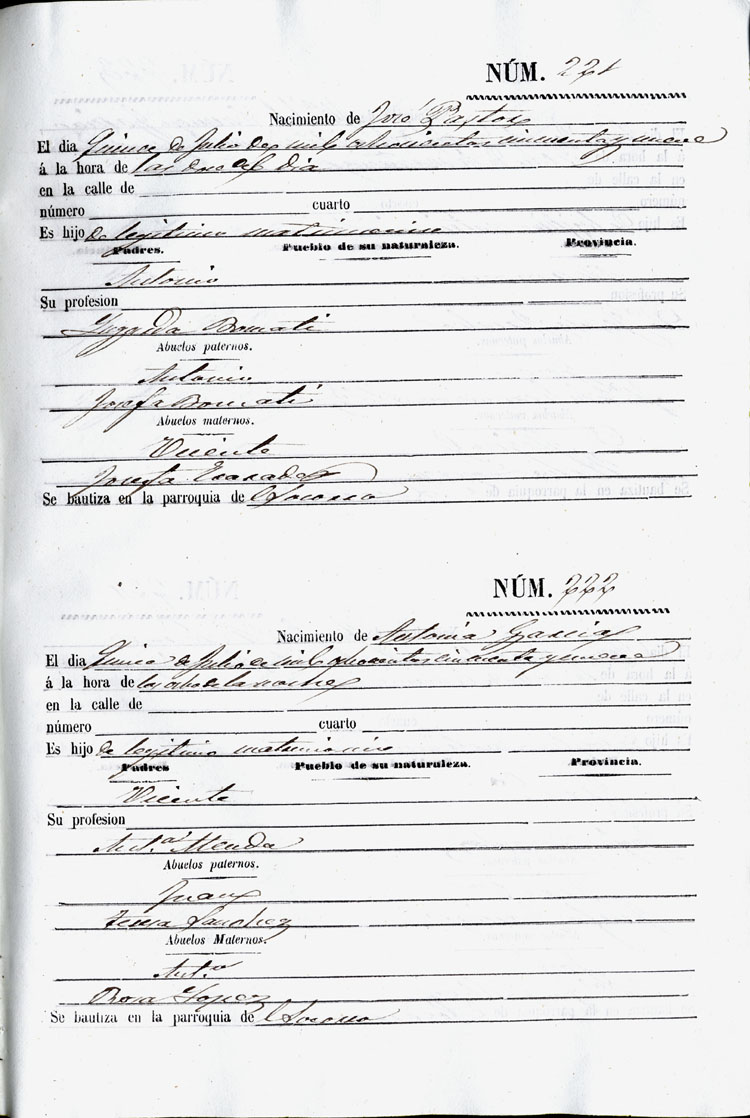 NÚM. 221
Nacimiento de José Pastor
El dia Quince de Julio de mil ochocientos cincuenta y nueve
á la hora de las doce del dia
en la calle de
número cuarto
Es hijo de legitimo matrimonio
Padres. Pueblo de su naturaleza. Provincia.
Antonio
Su profesion
Bomati
Abuelos paternos.
Antonio
Josefa Bomati
Abuelos maternos.
Vicente
Josefa
Se bautiza en la parroquia de El Socorro
NÚM. 222
Nacimiento de Antonia Garcia
El dia Quince de Julio de mil ochocientos cincuenta y nueve
á la hora de las ocho de la noche
en la calle de
número cuarto
Es hijo de legitimo matrimonio
Padres Pueblo de su naturaleza. Provincia.
Vicente
Su profesion
Ant.ª
Abuelos paternos.
Juan
Teresa Sanchez
Abuelos Maternos.
Ant.º
Rosa Lopez
Se bautiza en la parroquia de El Socorro